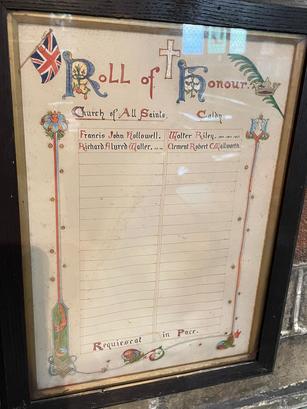 Roll of Honour.
Church of All Saints, Caldy.
Francis John Hollowell. Walter Riley.
Richard Alured Walter. Clement Robert C. Wallworth.
Requiescat in Pace.